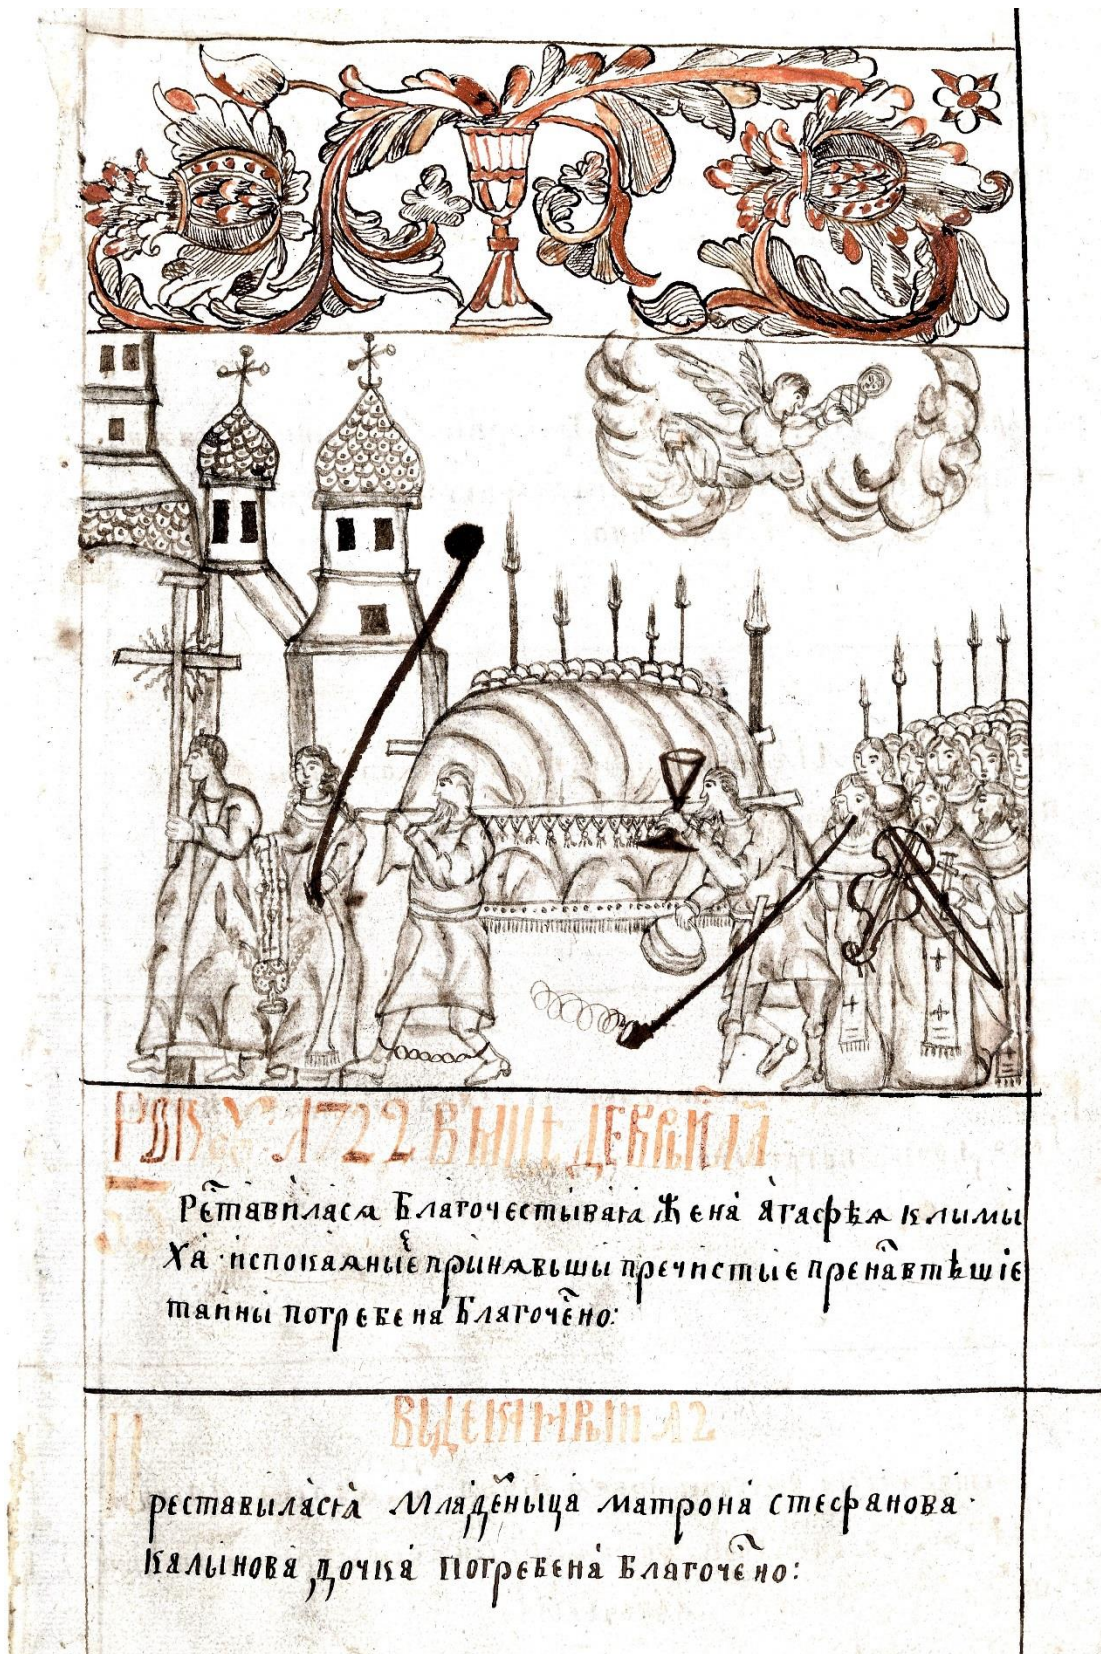 Рѡкꙋ 1722 в мце
Реставилася Благочестываꙗ Жена Агасфѣѧ климы
Ха испокаѧные принѧвьшы пречистые пренавтѣшіе
таины погребена Благочено:
Вь Декамврии 12
реставыласѧ младеныца матрона стесфанова
Калынова дочка погребена Благочено: